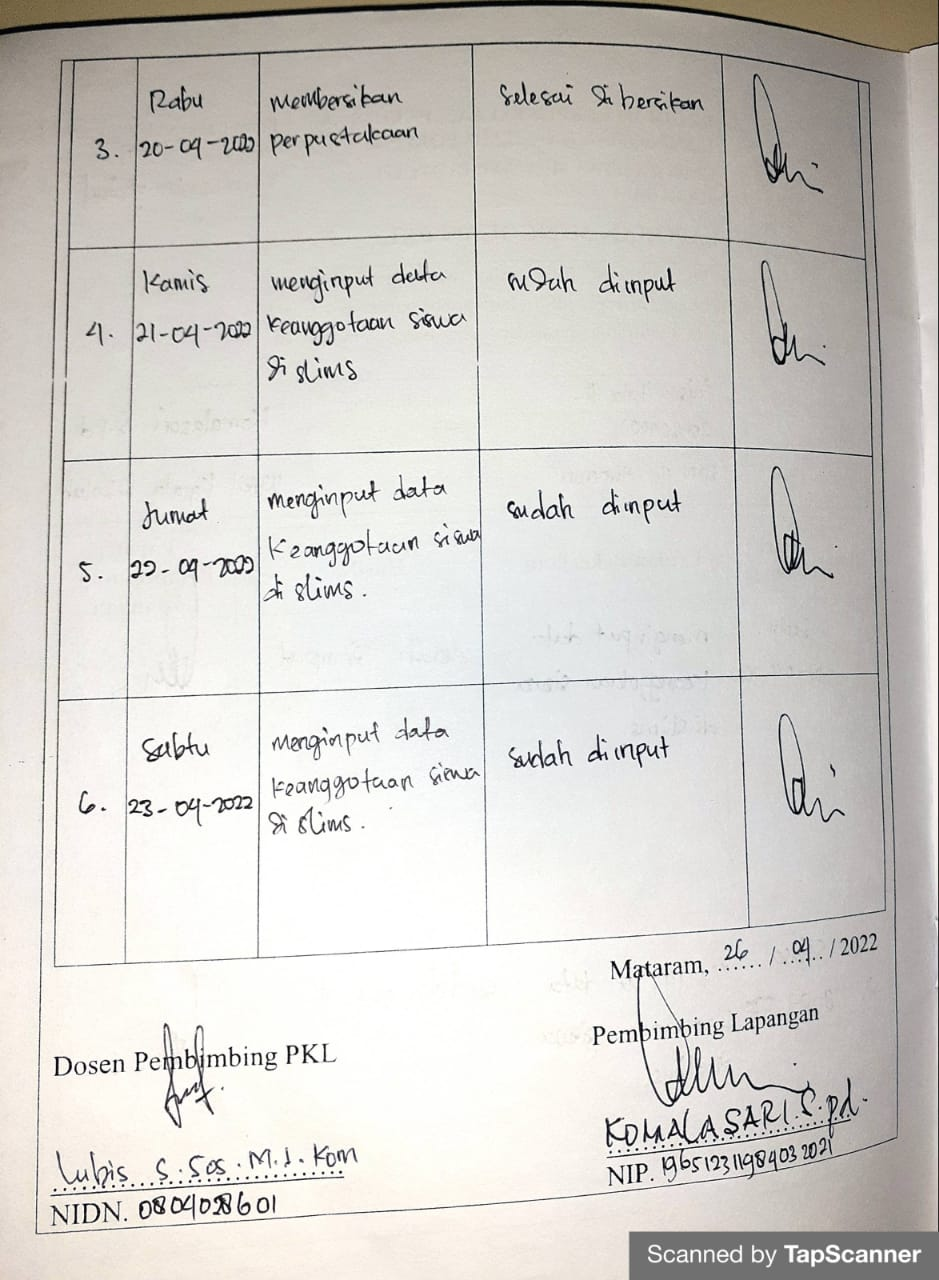 3.
Rabu
20-04-2022
Membersikan
perpustakaan
Selesai di bersikan
4.
Kamis
21-04-2022
menginput data
keanggotaan siswa
di slims
sudah diinput
5.
Jumat
22-04-2022
menginput data
Keanggotaan siswa
di slims.
sudah diinput
6.
Sabtu
23-04-2022
Menginput data
keanggotaan siswa
di slims.
sudah diinput
Mataram, 26 / 04 / 2022
Dosen Pembimbing PKL
Pembimbing Lapangan
Lubis S.Sos.M.I.Kom
NIDN. 0804028601
KOMALASARI S.pd.
NIP. 196512311984032021
Scanned by TapScanner